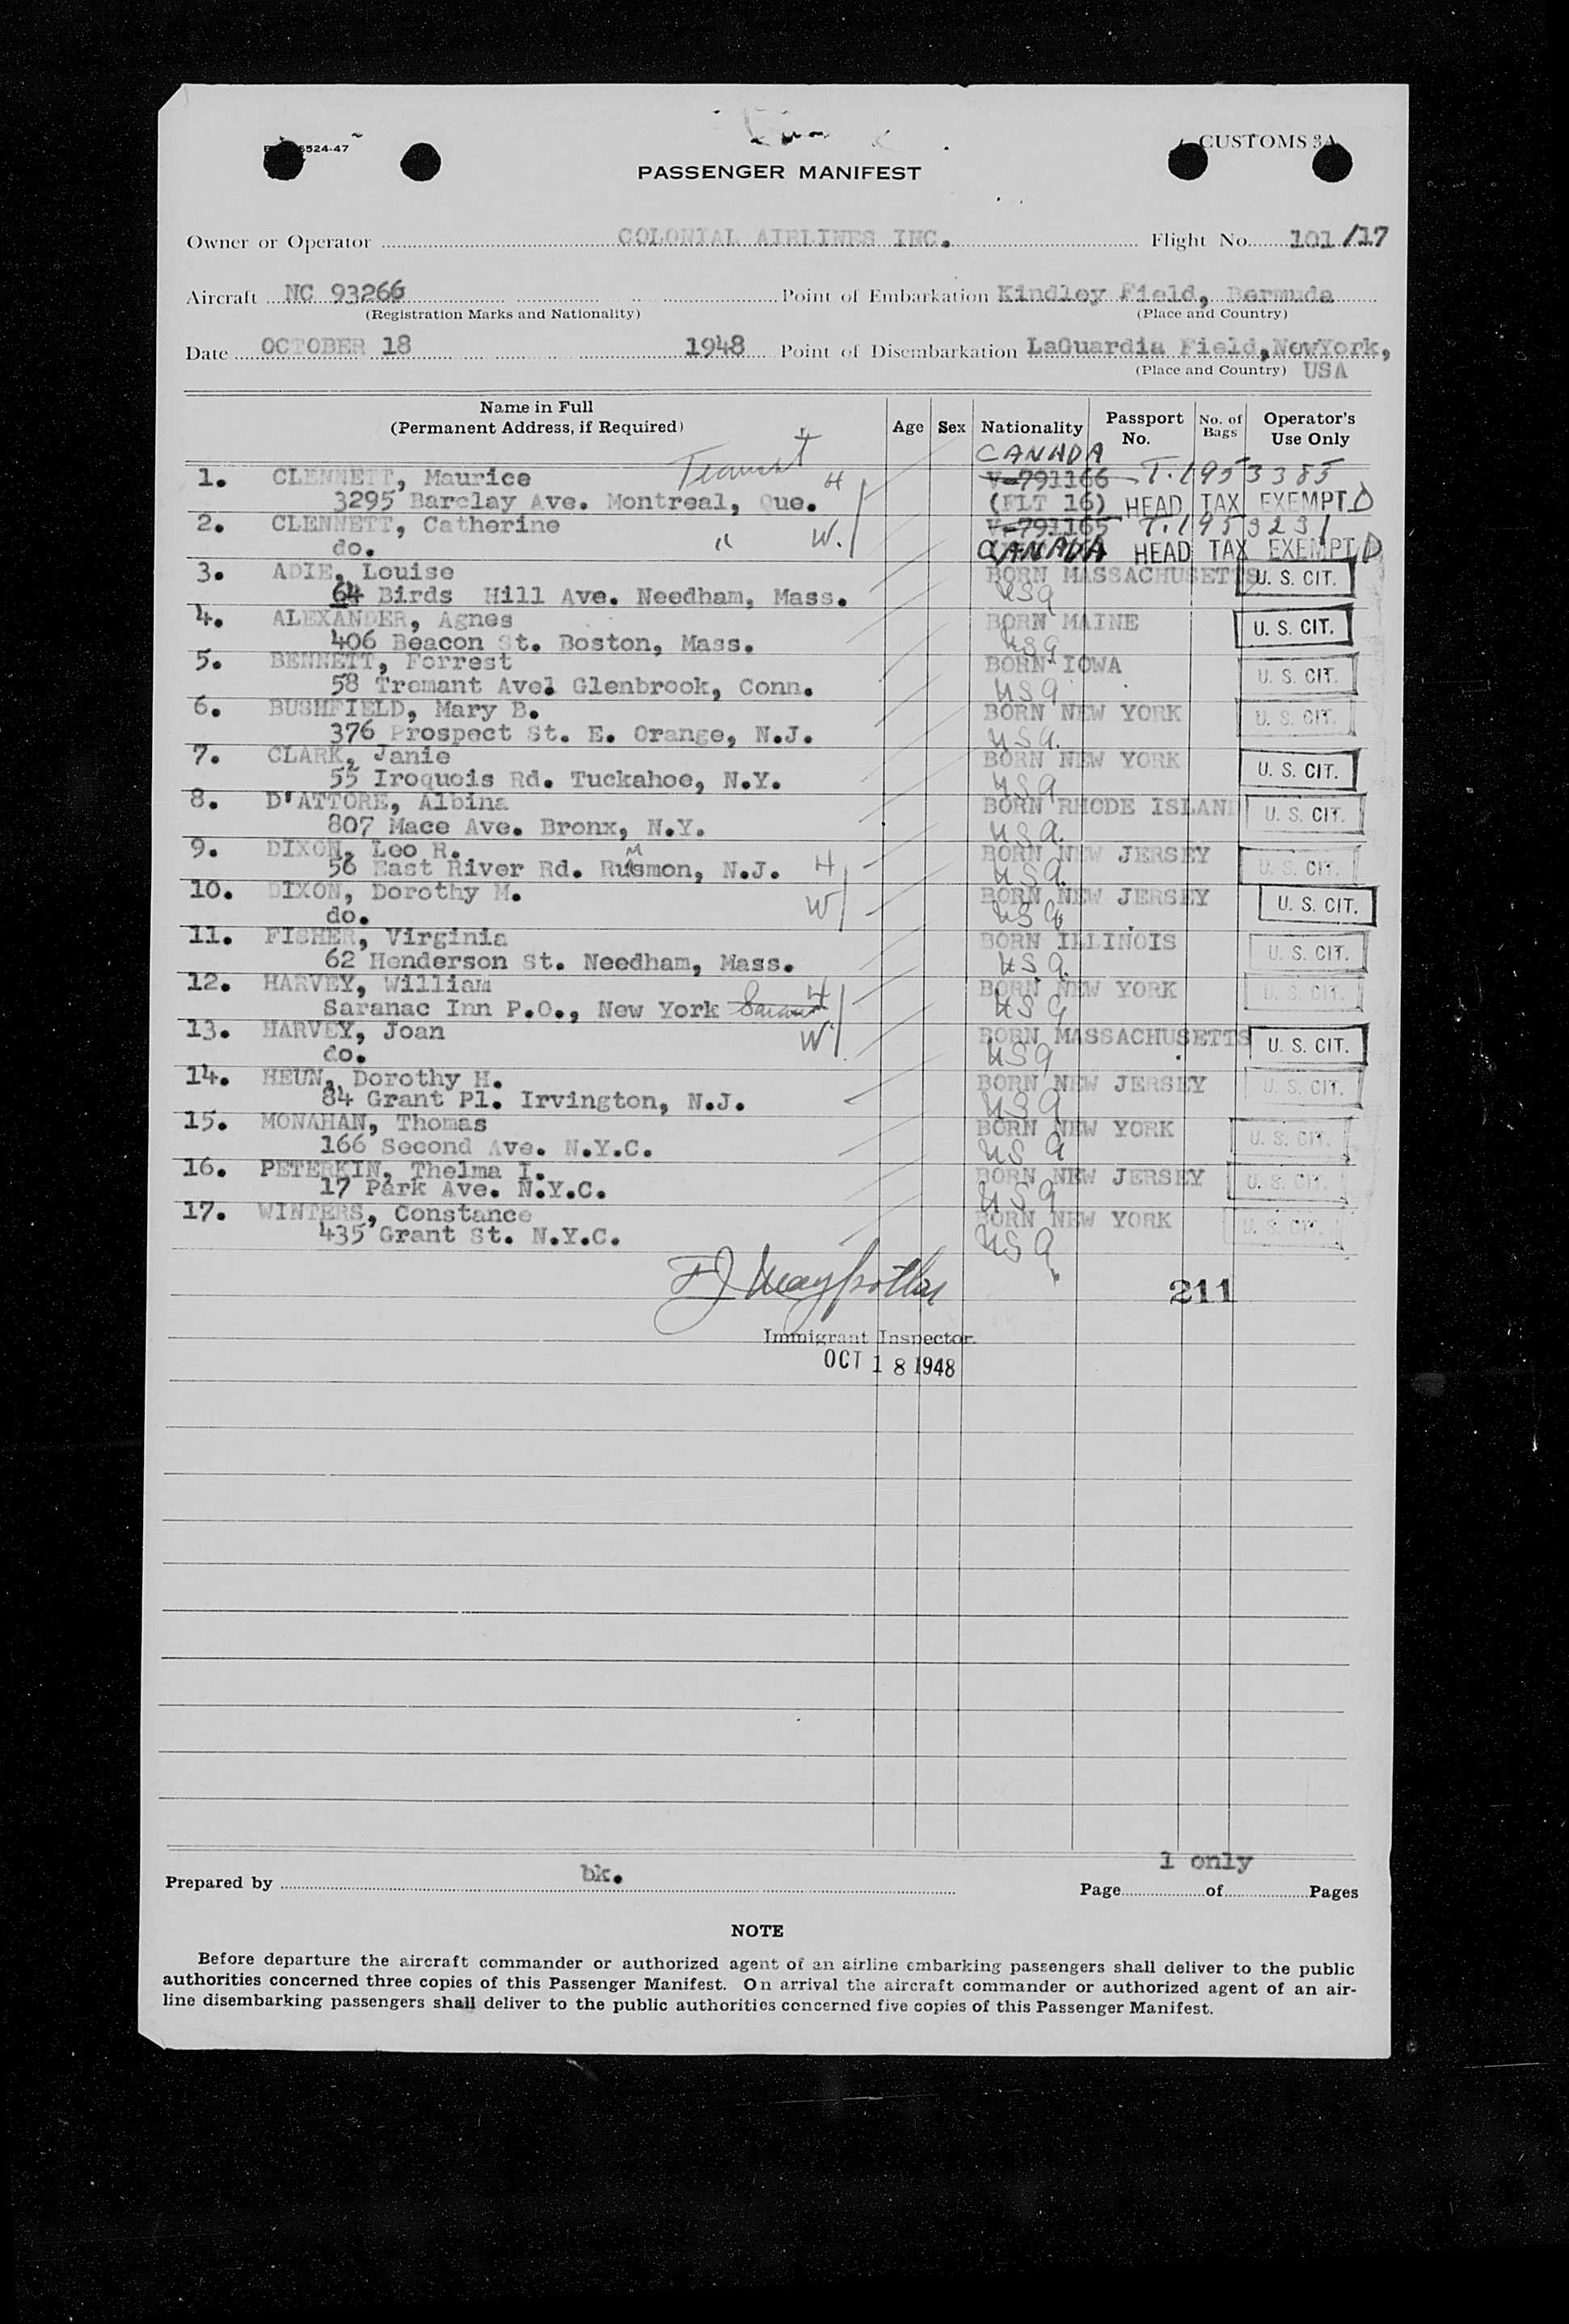 6524-47
CUSTOMS 3A
PASSENGER MANIFEST
Owner or Operator COLONIAL AIRLINES INC. Flight No. 101/17
Aircraft NC 93266 Point of Embarkation Kindley Field, Bermuda
(Registration Marks and Nationality) (Place and Country)
Date OCTOBER 18 1948 Point of Disembarkation LaGuardia Field, NewYork,
(Place and Country) USA
Name in Full
(Permanent Address, if Required) Age Sex Nationality Passport No. No. of Bags Operator's Use Only
CANADA
1. CLENNETT, Maurice H V-791166 T.1953385
3295 Barclay Ave. Montreal, Que. (FLT 16) HEAD TAX EXEMPT D
2. CLENNETT, Catherine W. V-791165 T.1953231
do. " CANADA HEAD TAX EXEMPT D
3. ADIE, Louise BORN MASSACHUSETTS U. S. CIT.
64 Birds Hill Ave. Needham, Mass. USA
4. ALEXANDER, Agnes BORN MAINE U. S. CIT.
406 Beacon St. Boston, Mass. USA
5. BENNETT, Forrest BORN IOWA U. S. CIT.
58 Tremant Ave. Glenbrook, Conn. USA
6. BUSHFIELD, Mary B. BORN NEW YORK U. S. CIT.
376 Prospect St. E. Orange, N.J. USA.
7. CLARK, Janie BORN NEW YORK U. S. CIT.
55 Iroquois Rd. Tuckahoe, N.Y. USA
8. D'ATTORE, Albina BORN RHODE ISLAND U. S. CIT.
807 Mace Ave. Bronx, N.Y. USA.
9. DIXON, Leo R. BORN NEW JERSEY U. S. CIT.
56 East River Rd. Rusmon, N.J. H USA.
10. DIXON, Dorothy M. W BORN NEW JERSEY U. S. CIT.
do. USA
11. FISHER, Virginia BORN ILLINOIS U. S. CIT.
62 Henderson St. Needham, Mass. USA.
12. HARVEY, William H BORN NEW YORK U. S. CIT.
Saranac Inn P.O., New York USA
13. HARVEY, Joan W BORN MASSACHUSETTS U. S. CIT.
do. USA
14. HEUN, Dorothy H. BORN NEW JERSEY U. S. CIT.
84 Grant Pl. Irvington, N.J. USA
15. MONAHAN, Thomas BORN NEW YORK U. S. CIT.
166 Second Ave. N.Y.C. USA
16. PETERKIN, Thelma I. BORN NEW JERSEY U. S. CIT.
17 Park Ave. N.Y.C. USA
17. WINTERS, Constance BORN NEW YORK U. S. CIT.
435 Grant St. N.Y.C. USA
211
Immigrant Inspector
OCT 18 1948
1 only
Prepared by bk. Page of Pages
NOTE
Before departure the aircraft commander or authorized agent of an airline embarking passengers shall deliver to the public
authorities concerned three copies of this Passenger Manifest. On arrival the aircraft commander or authorized agent of an air-
line disembarking passengers shall deliver to the public authorities concerned five copies of this Passenger Manifest.